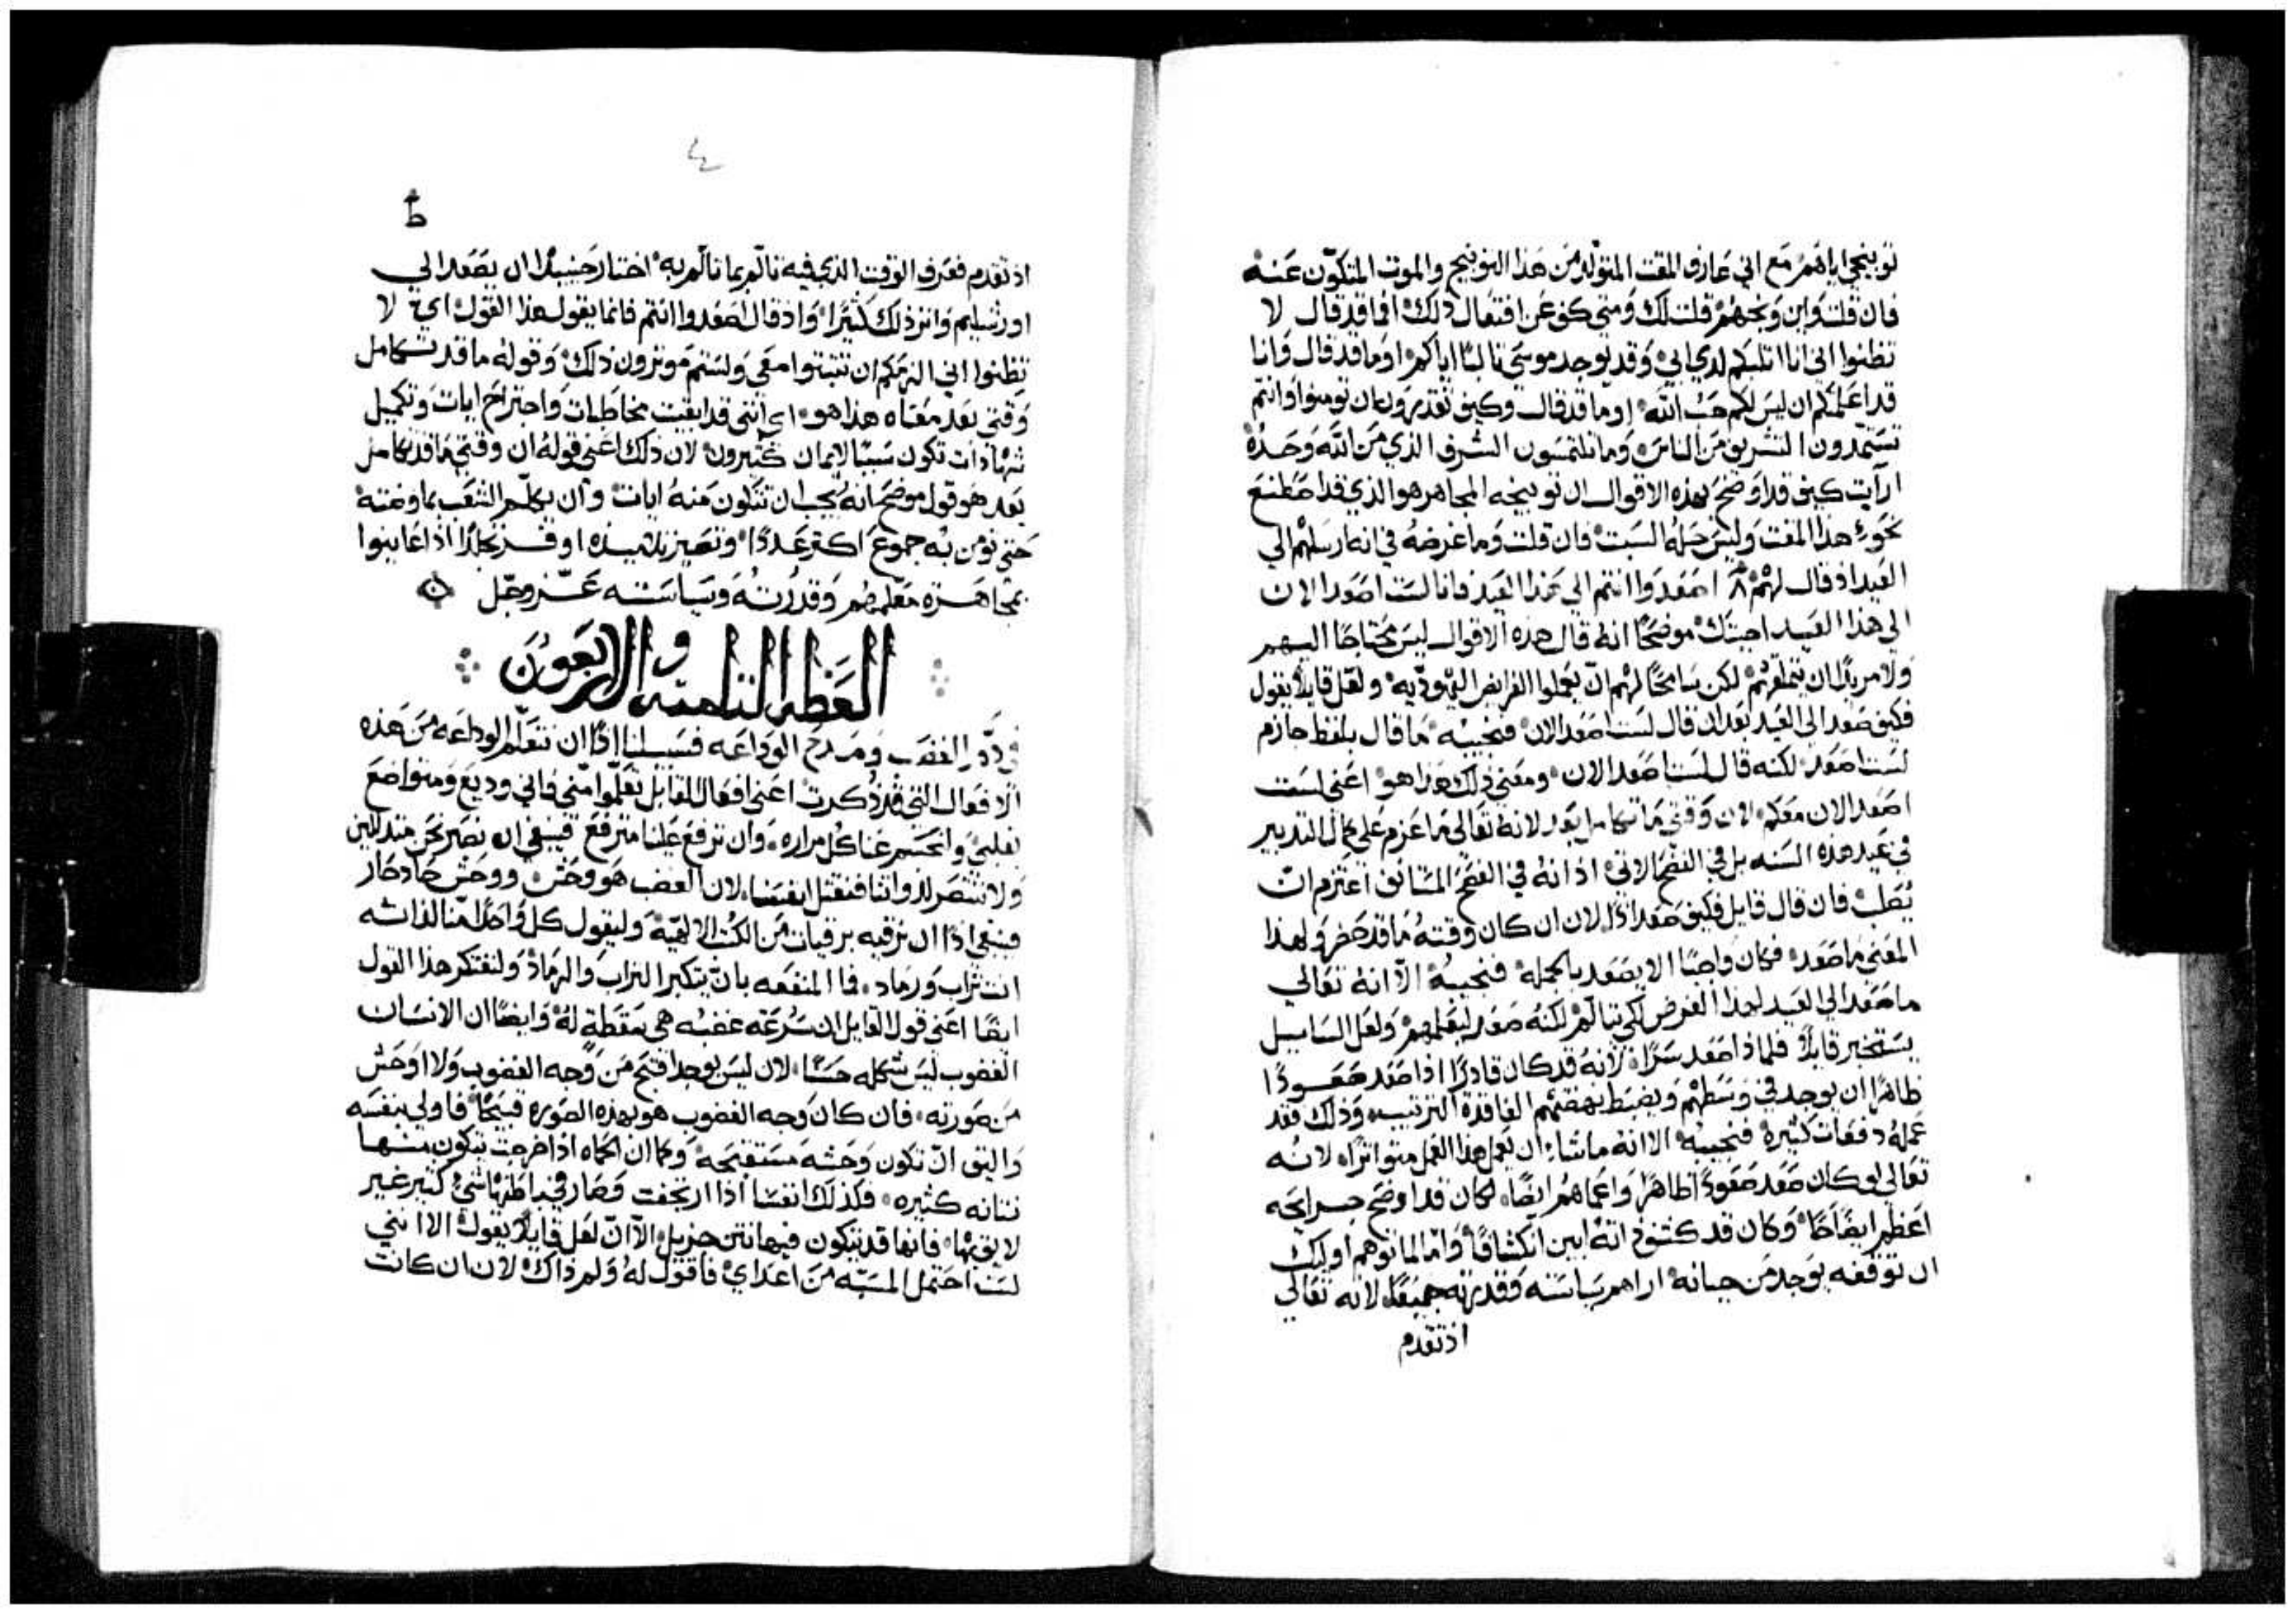 توبيخي اياهم مع اني عارف المقت المتولد من هذا التوبيخ والموت المتكوّن عنه
فان قلت واين وبخهم قلت لك ومتى كف عن افتعال ذلك افما قد قال لا
تظنوا اني انا اثلبكم لدي ابي وقد يوجد موسى ثالبًا اياكم او ما قد قال وانا
قد اعلمكم ان ليس لكم حب الله او ما قد قال وكيف تقدرون ان تومنوا وانتم
تستمدون التشريف من الناس وما تلتمسون الشرف الذي من الله وحده
ارآيت كيف قد اوضح بهذه الاقوال ان توبيخه المجاهر هو الذي قد اصطنع
نحوه هذا المقت وليس حله السبت فان قلت وما غرضه في انه ارسلهم الي
العيد اذ قال لهم ٨ اصعدوا انتم الي هذا العيد فانا لست اصعد الان
الي هذا العيد اجبتك موضحًا انه قال هذه الاقوال ليس محتاجًا اليهم
ولا مريدًا ان يتملقهم لكن سامحًا لهم ان يعملوا الفرايض اليهوديه ولعل قايلًا يقول
فكيف صعد الى العيد بعد ان قال لست اصعد الان فنجيبه ما قال بلفظ جازم
لست اصعد لكنه قال لست اصعد الان ومعني ذلك هذا هو اعني لست
اصعد الان معكم لان وقتي ما تكامل بعد لانه تعالى ما عزم على كمال التدبير
في عيد هذه السنه بل في الفصح الاتي اذ انه في الفصح المتانف اعتزم ان
يُصلب فان قال قايل فكيف صعد اذًا لان ان كان وقته ما قد حضر ولهذا
المعني ما صعد فكان واجبًا الا يصعد بالجمله فنجيبه الا انه تعالي
ما صعد الي العيد لهذا الغرض لكي يتالم لكنه صعد ليعلمهم ولعل السايل
يستخبر قايلًا فلماذا صعد سرًّا لانه قد كان قادرًا اذا صعد صعودًا
ظاهرًا ان يوجد في وسطهم ويضبط نهضتهم الفاقدة الترتيب وذلك فقد
عمله دفعات كثيرة فنجيبه الا انه ما شاء ان يعمل هذا العمل متواترًا لانه
تعالي لو كان صعد صعودًا ظاهرًا واعماهم ايضًا لكان قد اوضح جرايحه
اعظم ايضاحًا وكان قد كشف انه ابين انكشافًا وامّا لما توهم اوليك
ان توقفه يوجد من جبانه اراهم سياسته وقدرته جميعًا لانه تعالي
اذ تقدم
٤
ط
اذ تقدم فعرف الوقت الذي فيه تالّم بما تالّم به اختار حينيذًا ان يصعد الي
اورشليم وانر ذلك كثيرًا واذ قال اصعدوا انتم فانما يقول هذا القول اي لا
تظنوا اني الزمكم ان تثبتوا معي ولستم موثرون ذلك وقوله ما قد تكامل
وقتي بعد معناه هذا هو اي انني قد ابقيت مخاطبات واجتراح ايات وتكميل
شهادات تكون سببًا لايمان كثيرون لان ذلك اعني قوله ان وقتي ما قد تكامل
بعد هو قول موضح انه يجب ان تتكون منه ايات وان يكلّم الشعب بما وعته
حتى تومن به جموع اكثر عددًا وتصير تلاميذه اوفر تجلدًا اذا عاينوا
مجاهرة معلمهم وقدرته وسياسته عز وجل
العظه الثامنه والاربعون
في ذمّ الغضب ومدح الوداعه فسبيلنا اذًا ان نتعلّم الوداعه من هذه
الافعال التي قد ذُكرت اعني افعال القايل تعلّموا منّي فاني وديع ومتواضع
بقلبي وانحسم عنا كل مراره وان ترفع علينا مترفع فينبغي ان نصير نحن متذللين
ولا ننتصر لذواتنا فنقتل انفسنا لان الغضب هو وحش ووحش حاد حار
فينبغي اذًا ان نرقيه برقيات من الكتب الالهيّة وليقول كل واحد منّا لذاته
انت تراب ورماد فما المنفعه بان يتكبر التراب والرماد ولنفتكر هذا القول
ايضًا اعني قول القايل ان سُرعة غضبه هي سقطة له وايضًا ان الانسان
الغضوب ليس شكله حسنًا لان ليس يوجد اقبح من وجه الغضوب ولا اوحش
من صورته فان كان وجه الغضوب هو بهذه الصوره قبيحًا فاولي بنفسه
واليق ان تكون وحشه مستقبحه وكما ان الحماه اذا خرجت يتكون منها
نتانه كثيره فكذلك انفسنا اذا ارتجفت وصار في باطنها شيء كثير غير
لايق بها فانها قد يتكون فيها نتن جزيل الا ان لعل قايلًا يقول الا انني
لست احتمل المسبّه من اعداي فاقول له ولم ذاك لان ان كانت